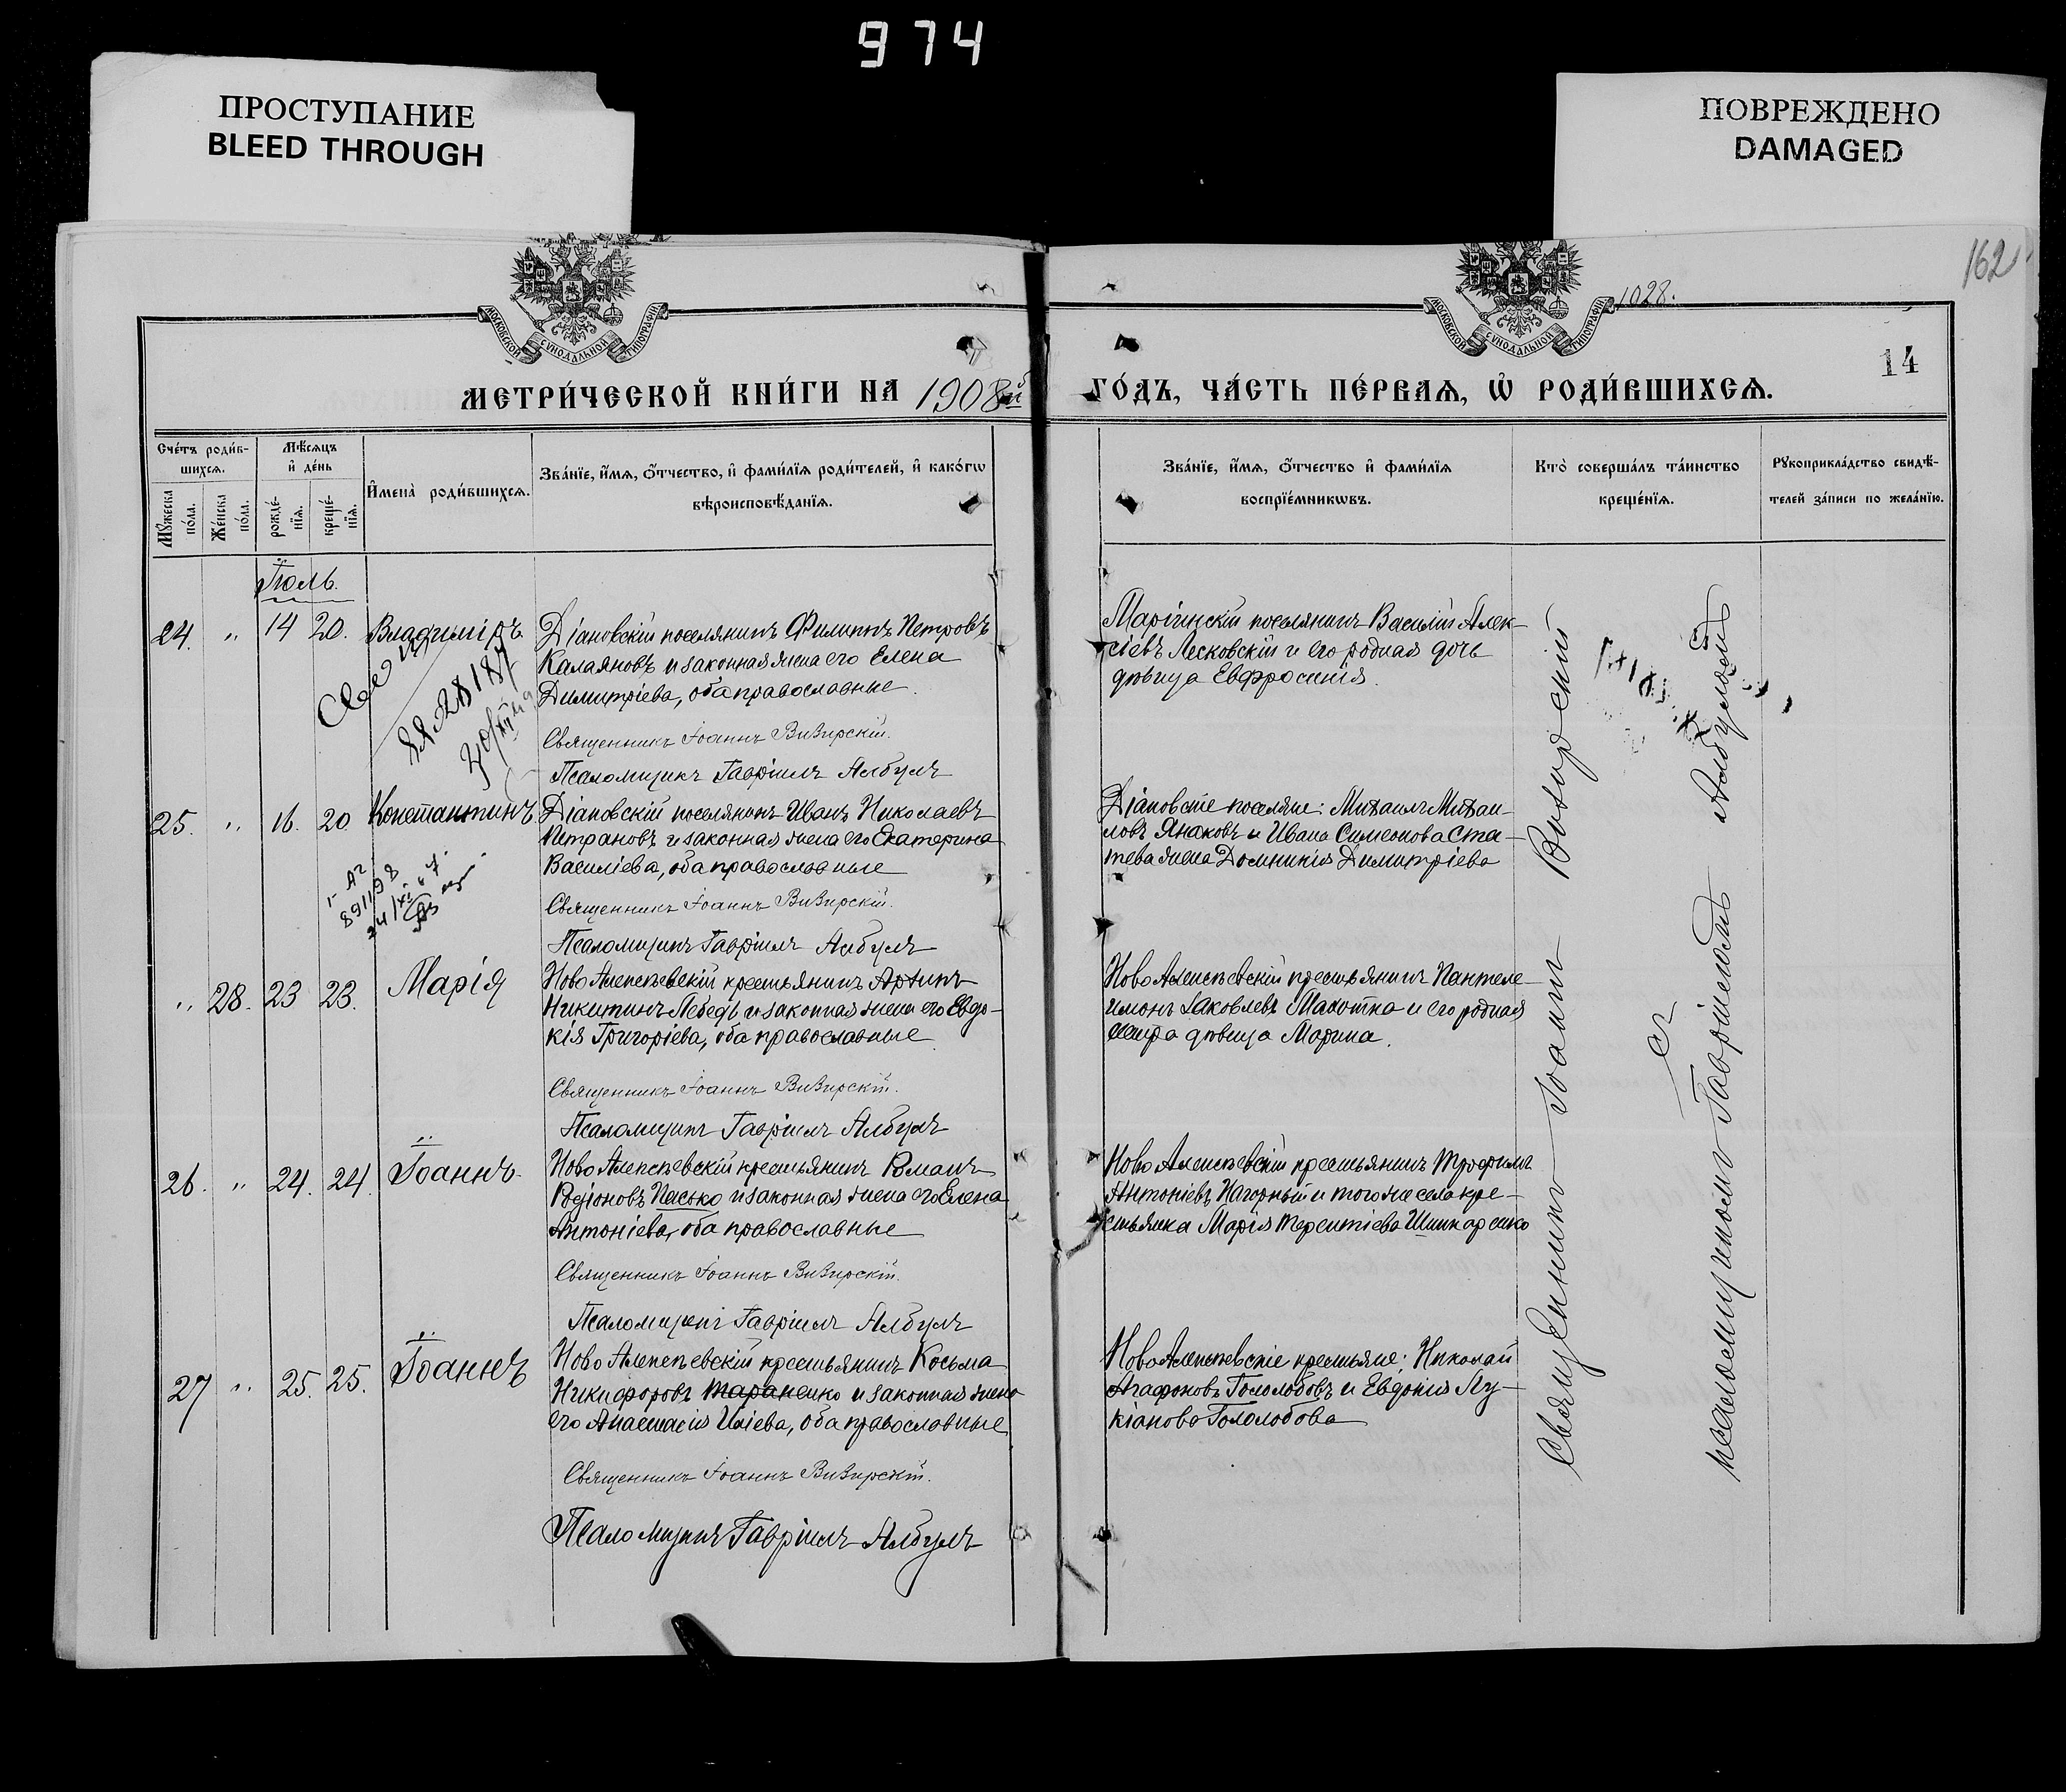 974
ПРОСТУПАНИЕ
BLEED THROUGH
ПОВРЕЖДЕНО
DAMAGED
162
1028.
14
МОСКОВСКОЙ СѴНОДАЛЬНОЙ ТИПОГРАФІИ
МОСКОВСКОЙ СѴНОДАЛЬНОЙ ТИПОГРАФІИ
МЕТРИ́ЧЕСКОЙ КНИ́ГИ НА 1908й ГО́ДЪ, ЧА́СТЬ ПЕ́РВАѦ, Ѡ҆ РОДИ́ВШИХСѦ.
Сче́тъ роди́в-
шихсѧ.
Мꙋ́жеска по́ла.
Же́нска по́ла.
Мѣ́сѧцъ
и҆ де́нь
рожде́-
нїѧ.
креще́-
нїѧ.
И҆мена̀ роди́вшихсѧ.
Зва́нїе, и҆́мѧ, ѻ҆́тчество, и҆ фами́лїѧ роди́телей, и҆ како́гѡ
вѣроисповѣ́данїѧ.
Зва́нїе, и҆́мѧ, ѻ҆́тчество и҆ фами́лїѧ
воспрїе́мникѡвъ.
Кто̀ соверша́лъ та́инство
креще́нїѧ.
Рꙋкоприкла́дство свидѣ́-
телей за́писи по жела́нїю.
Іюль.
24. " 14 20. Владиміръ
Діановскій поселянинъ Филиппъ Петровъ
Калаяновъ и законная жена его Елена
Димитріева, оба православные.
Священникъ Іоаннъ Визирскій.
Псаломщикъ Гавріилъ Албулъ
Маріинскій поселянинъ Василій Алек-
сіевъ Лесковскій и его родная дочь
дѣвица Евфросинія.
25. " 16. 20 Константинъ
Діановскій поселянинъ Иванъ Николаевъ
Петрановъ и законная жена его Екатерина
Василіева, оба православные
Священникъ Іоаннъ Визирскій.
Псаломщикъ Гавріилъ Албулъ
891198
Діановскіе поселяне: Михаилъ Михаи-
ловъ Янаковъ и Ивана Симеонова Ста-
тева жена Домникія Димитріева
" 28. 23 23. Марія
Ново Алексѣевскій крестьянинъ Архипъ
Никитинъ Лебедь и законная жена его Евдо-
кія Григоріева, оба православные
Священникъ Іоаннъ Визирскій.
Псаломщикъ Гавріилъ Албулъ
Ново Алексѣевскій крестьянинъ Пантеле-
имонъ Іаковлевъ Махотка и его родная
сестра дѣвица Марина.
26. " 24. 24. Іоаннъ.
Ново Алексѣевскій крестьянинъ Романъ
Родіоновъ Пасько и законная жена его Елена
Антоніева, оба православные
Священникъ Іоаннъ Визирскій.
Псаломщикъ Гавріилъ Албулъ
Ново Алексѣевскій крестьянинъ Трофимъ
Антоніевъ Нагорный и того же села кре-
стьянка Марія Терентіева Шинкаренко
27 " 25. 25. Іоаннъ
Ново Алексѣевскій крестьянинъ Косьма
Никифоровъ Тараненко и законная жена
его Анастасія Иліева, оба православные
Священникъ Іоаннъ Визирскій.
Псаломщикъ Гавріилъ Албулъ
Ново Алексѣевскіе крестьяне: Николай
Агафоновъ Гололобовъ и Евдокія Лу-
кіанова Гололобова
Священникъ Іоаннъ Визирскій
съ
псаломщикомъ Гавріиломъ Албуломъ